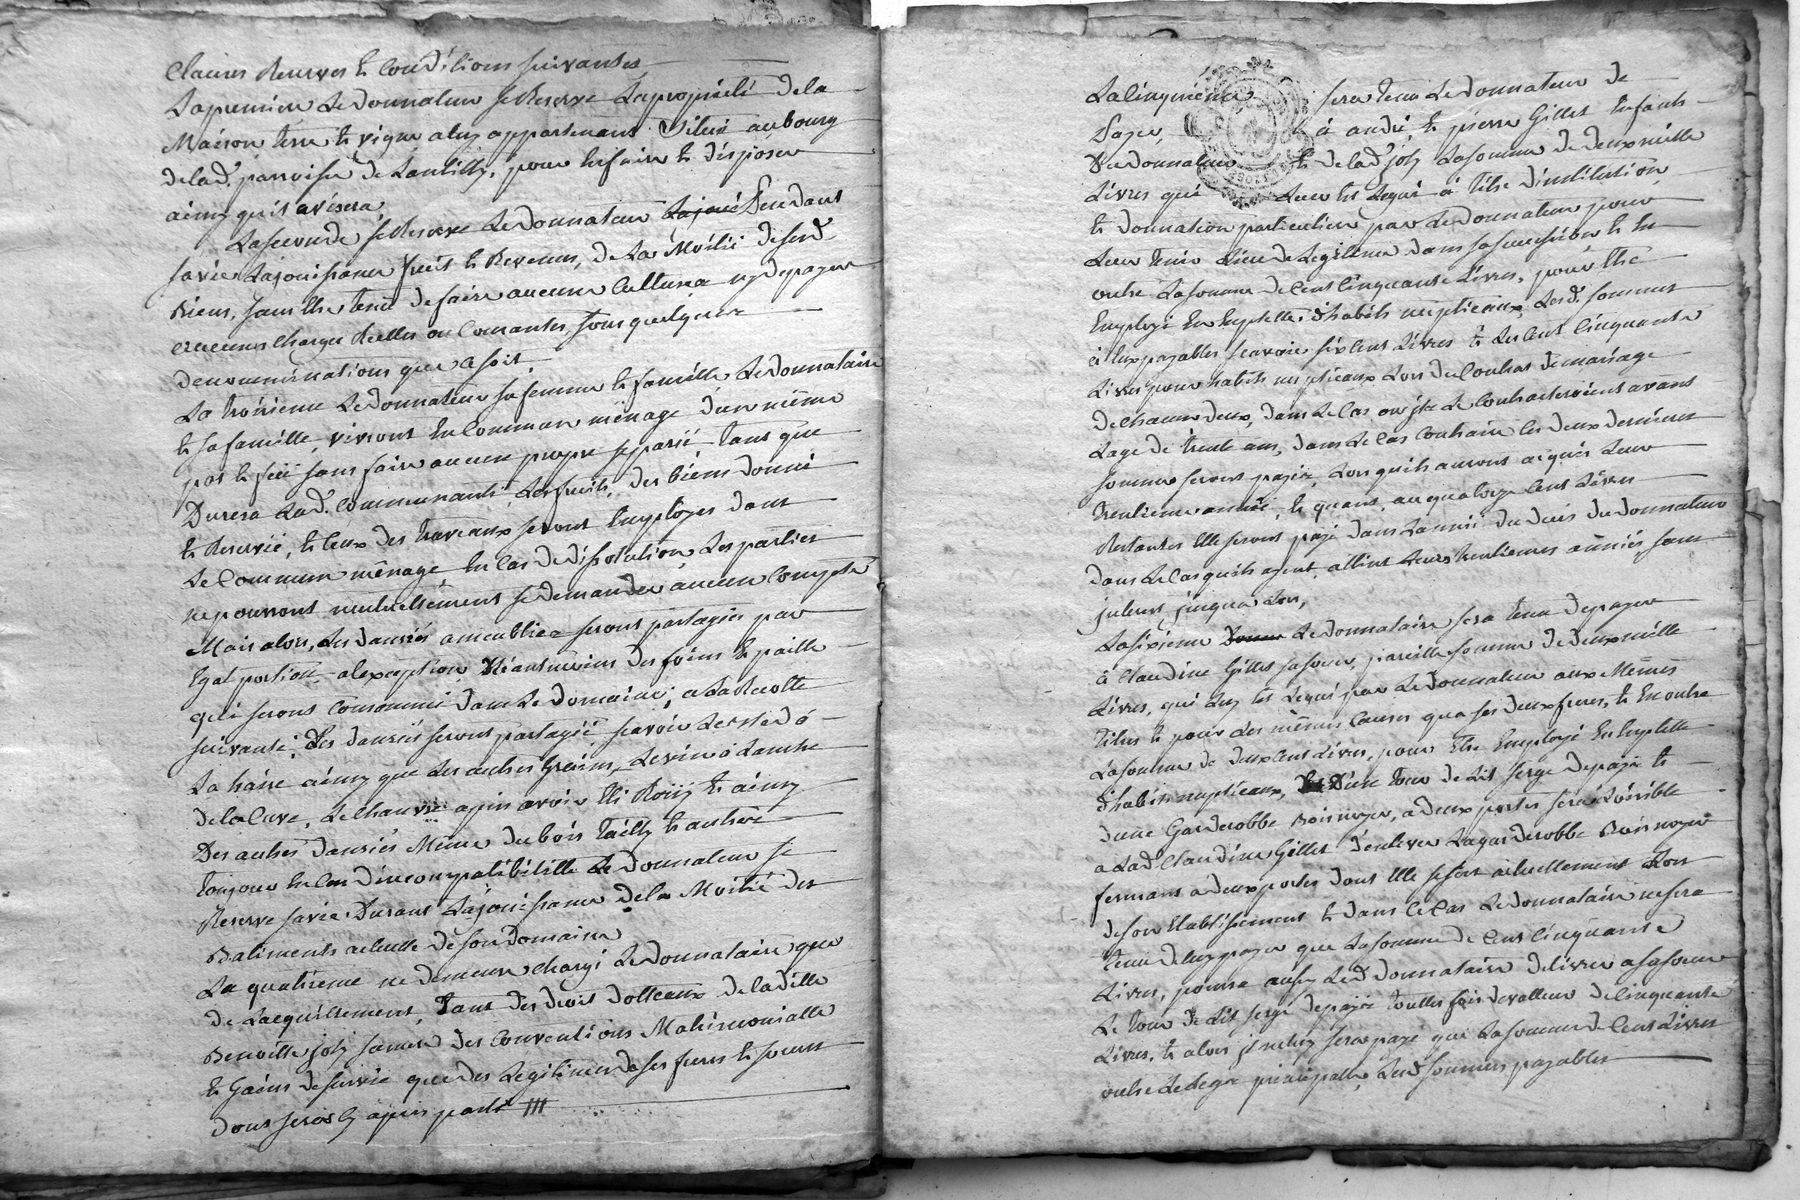 Clauses Reserves et Conditions suivantes
La premiere Le donnateur se Reserve La propriété de la
Maison terre et vigne a luy appartenant Situés au bourg
de lad. parroisse de Lantilly, pour en faire et disposer
ainsy qu'il avisera
La seconde se Reserve Le donnateur La joui Pendant
sa vie La jouissance fruits et Revenus, de La Moitié de sesd.
Biens, sans Etre tenu de faire aucune Culture ny de payer
aucunes Charges Reelles ou Courantes, sous quelques
denominations que ce soit,
La troisieme Le donnateur sa femme et famille Le donnataire
et sa famille, vivront En Commun ménage d'un même
pot et feu sans faire aucun propre separé tant que
Durera Lad. Communauté Les fruits, des biens donné
et Reservé, et Ceux des travaux seront Employes dans
Le Commun ménage En Cas de dissolution Les parties
ne pourront mutuellement se demander aucun Compte
Mais alors, Les danrées ameublies seront partagées par
Egal portion a l'exception Néantmoins des foins et paille
qui seront Consommé dans Le domaine; a La Recolte
suivante; Les danrées seront partagée scavoir Le bled à
La haire ainsy que Les autres Grains, Le vin à L'anche
de la Cuve, Le Chanvre apres avoir eté Roüy et ainsy
Des autres danrées Même du bois tailly et autres
toujour En Cas d'incompatibilitté Le donnateur se
Reserve sa vie Durant La jouissance de la Moitié des
Batiments actuelle de son Domaine
La quatrieme ne demeure chargé Le donnataire que
de L'acquittement, tant des droit dotteaux de la ditte
Benoitte joly sa mere des Conventions Matrimonialle
et Gains de survie que des Legitimes de ses freres et soeurs
dont sera Cy apres parlé
La Cinquieme sera tenu Le donnateur de
Payer à andré et pierre Gillet Enfants
Du donnateur et de lad. joly La somme de deux mille
Livres qui Leur est Legué à titre d'institution
et donnation particuliere par Le donnateur pour
Leur tenir Lieu de Legitime dans sa succession et En
outre La somme de Cent Cinquante Livres, pour etre
Employé En Emplette d'habits nuptieaux Lesd. sommes
à Eux payables scavoir six Cent Livres et Les Cent Cinquante
Livres pour habits nuptieaux Lors du Contrat de mariage
de chacun deux, dans Le Cas ou ils Le Contracteroient avant
L'age de trente ans, dans Le Cas Contraire Les deux dernieres
sommes seront payée, Lorsqu'ils auront acquis Leur
trentieme année, et quant, au quatorze Cent Livres
Restantes Elle seront payé dans L'année du deces du donnateur
dans Le Cas qu'ils ayent attint Leurs trentiemes années sans
interest jusqua Lors,
La sixieme Le donnataire sera tenu de payer
à Claudine Gillet sa soeur, pareille somme de deux mille
Livres, qui Luy est Legué par Le donnateur aux Mêmes
titres et pour des mêmes Causes que ses deux freres, et En outre
La somme de deux Cent Livres, pour Etre Employé En Emplette
d'habits nuptieaux, D'un tour de Lit serge depajé et
d'une Garderobbe Bois noyer, a deux portes sera Loisible
a Lad. Claudine Gillet d'enlever La garderobbe Bois noyer
fermant a deux portes dont Elle se sert actuellement Lors
de son Etablissement et dans Ce Cas Le donnataire ne sera
tenu de luy payer que La somme de Cent Cinquante
Livres, pourra aussy Led. donnataire delivrer a sa soeur
Le tour de Lit serge depajé touttes fois de valleur de Cinquante
Livres, et alors il ne luy sera payé que La somme de Cent Livres
outre Le Legat principalle Lesd. sommes payables